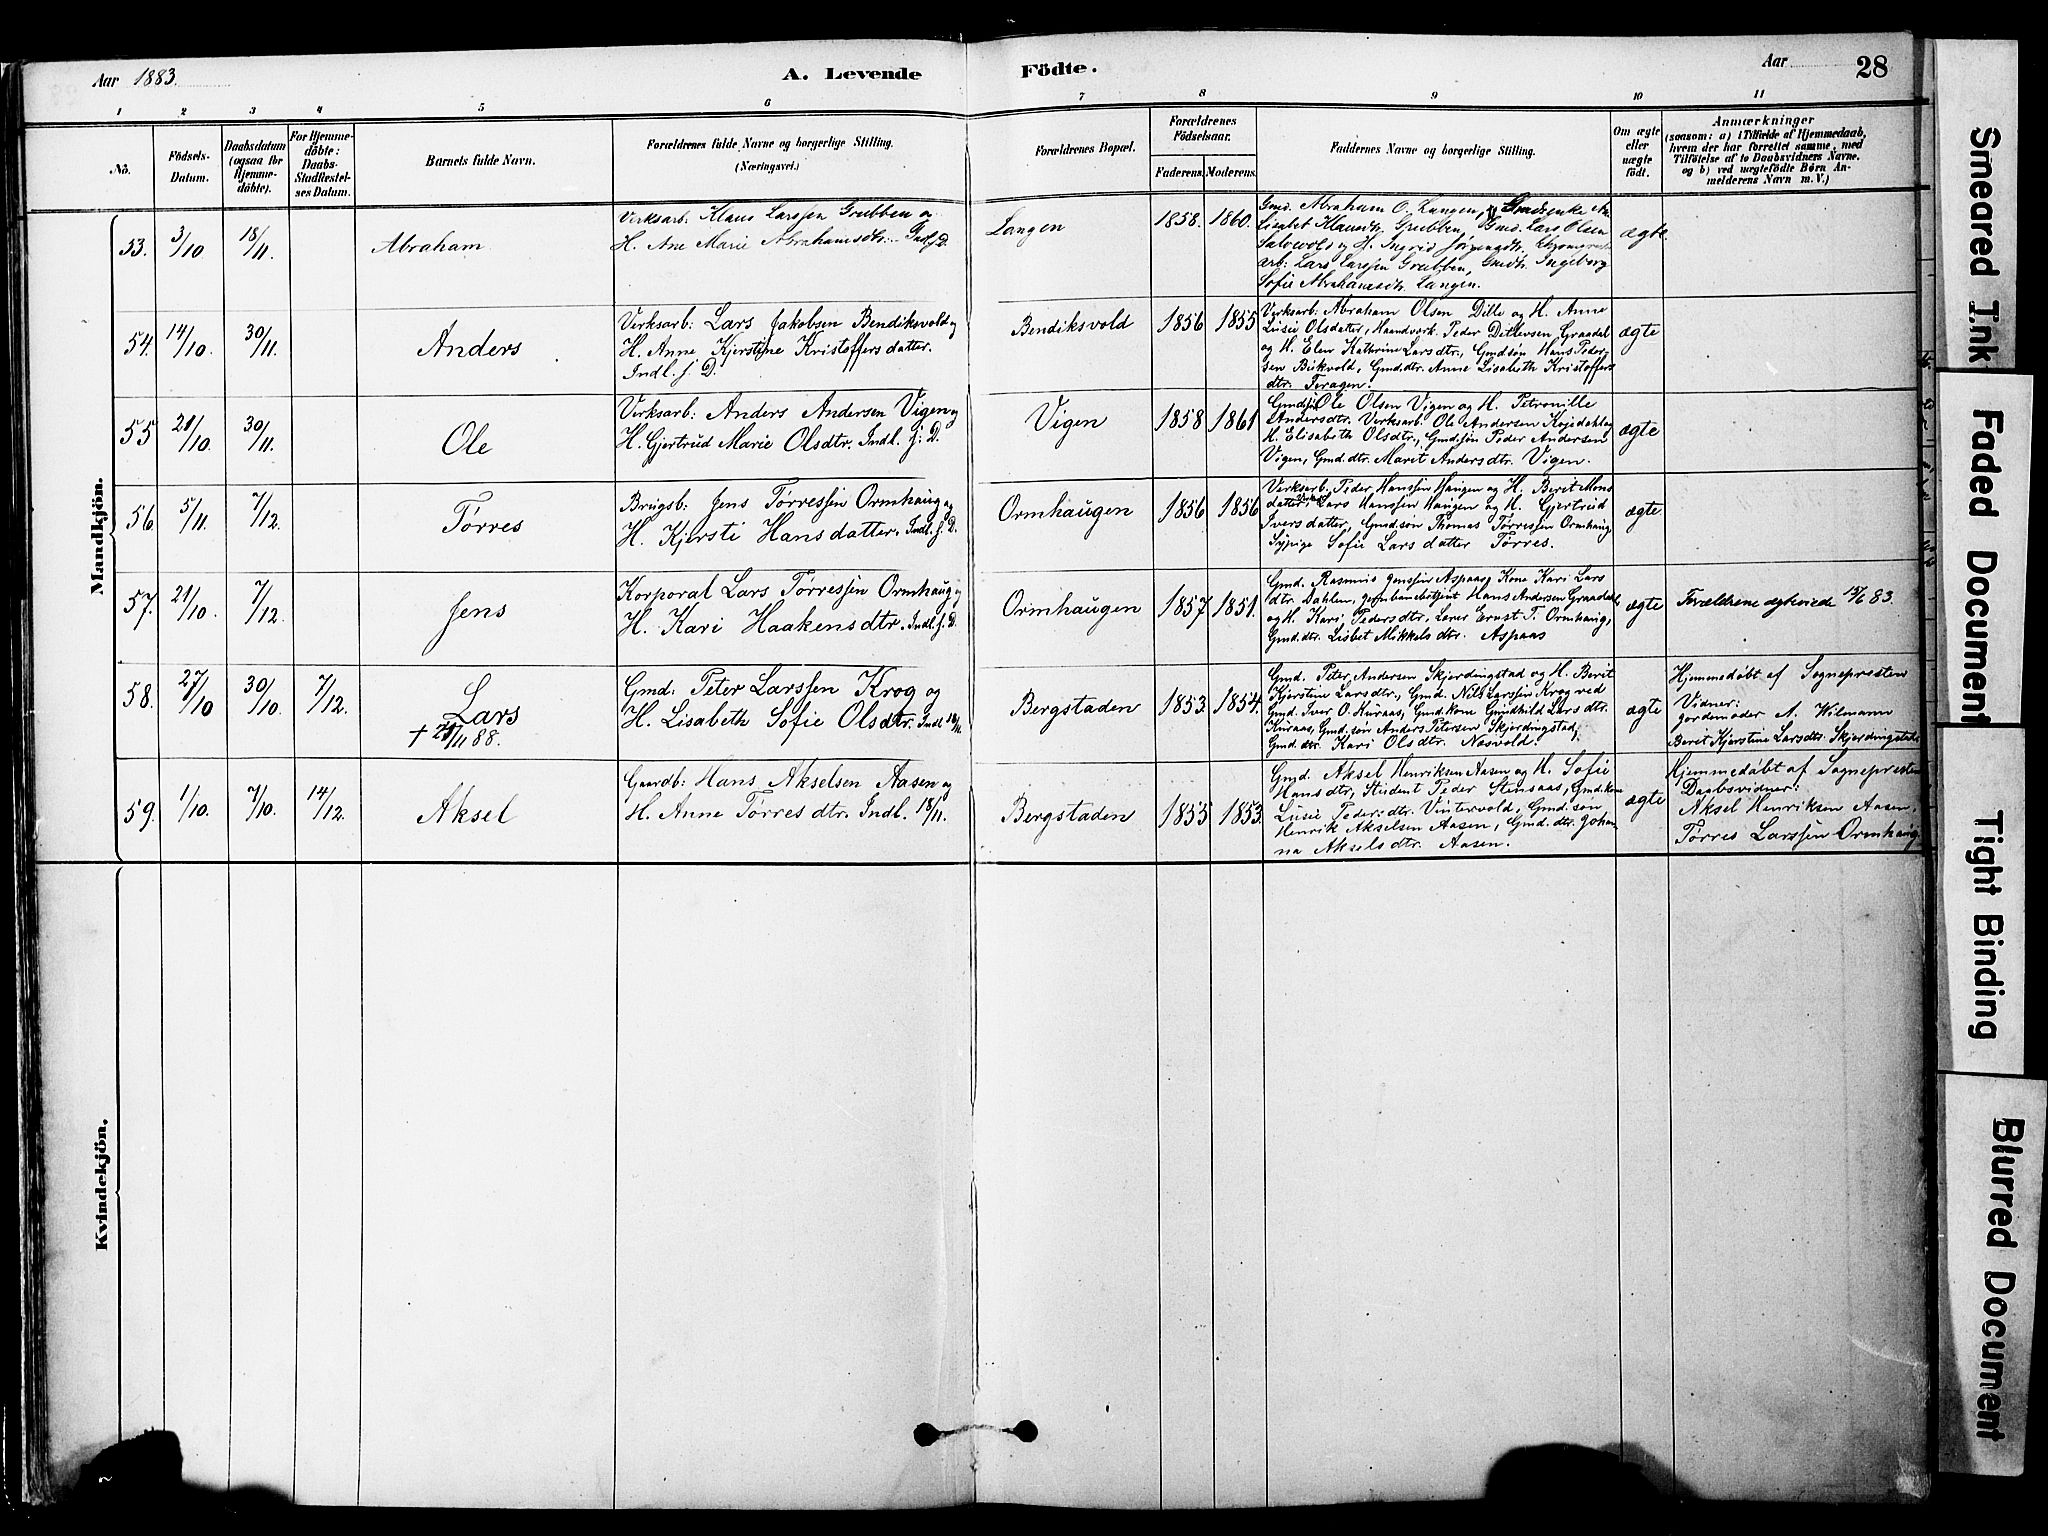 Aar 1883. A. Levende Födte. Aar 28
1 2 3 4 5 6 7 8 9 10 11
No.
Födsels-
Datum.
Daabsdatum
(ogsaa for
Hjemme-
döbte).
For Hjemme-
döbte:
Daabs-
Stadfæstel-
ses Datum.
Barnets fulde Navn.
Forældrenes fulde Navne og borgerlige Stilling.
(Næringsvei.)
Forældrenes Bopæl.
Forældrenes
Födselsaar.
Faderens. Moderens.
Faddernes Navne og borgerlige Stilling.
Om ægte
eller
uægte
födt.
Anmærkninger
(saasom: a) i Tilfælde af Hjemmedaab,
hvem der har forrettet samme, med
Tilföielse af to Daabsvidners Navne.
og b) ved uægtefödte Börn An-
melderens Navn m. V.)
Mandkjön.
53. 3/10 18/11 Abraham
Verksarb: Klaus Larssen Grubben og
H. Ane Marie Abrahamsdtr. Indl. f. D.
Langen 1858. 1860.
Gmd. Abraham O. Langen,
Lisabet Klausdtr. Grubben, Gmd. Lars Olsen
og H. Ingrid
arb: Lars Larssen Grubben, Gmdtr. Ingeborg
Sofie Abrahamsdtr. Langen.
ægte.
54. 14/10 30/11 Anders
Verksarb: Lars Jakobsen Bendiksvold og
H. Anne Kjerstine Kristoffersdatter.
Indl. f. D.
Bendiksvold 1856 1855
Verksarb: Abraham Olsen Dille og H. Anne
Lusie Olsdatter, Haandverk. Peder Ditlevsen Graadal
og H. Elen Kathrine Larsdtr., Gmdsön Hans Peder-
sen Bukvold, Gmd.dtr. Anne Lisabeth Kristoffers
dtr. Feragen.
ægte
55 21/10 30/11 Ole
Verksarb: Anders Andersen Vigen og
H. Gjertrud Marie Olsdtr. Indl. f. D.
Vigen 1858 1861
Gmdsön Ole Olsen Vigen og H. Petronille
Andersdtr. Verksarb. Ole Andersen Kojedahl og
H. Elisabeth Olsdtr., Gmd.søn Peder Andersen
Vigen, Gmd.dtr. Marit Andersdtr. Vigen.
ægte
56 5/11. 7/12. Tørres
Brugsb: Jens Tørressen Ormhaug og
H. Kjersti Hansdatter. Indl. f. D.
Ormhaugen 1856 1856
Verksarb. Peder Hanssen Haugen og H. Berit Mons
datter, Lars Hanssen Haugen og H. Gjertrud
Iversdatter, Gmd.søn Thomas Tørressen Ormhaug,
Sypige Sofie Larsdatter Tørres.
ægte
57. 21/10. 7/12. Jens
Korporal Lars Tørressen Ormhaug og
H. Kari Haakensdtr. Indl. f. D.
Ormhaugen 1857. 1851.
Gmd. Rasmus Jenssen Aspaas, Kone Kari Lars
dtr. Dahlen, Jernbanebetjent Hans Andersen Graadal,
og H. Kari Pedersdtr, Lærer Ernst T. Ormhaug,
Gmd.dtr. Lisbet Mikkelsdtr. Aspaas
ægte
Forældrene ægteviede 13/6 83.
58. 27/10 30/10 7/12. Lars
+ 88.
Gmd. Peter Larssen Krog og
H. Lisabeth Sofie Olsdtr. Indl.
Bergstaden 1853. 1854.
Gmd. Peter Andersen Skjerdingstad og H. Berit
Kjerstine Larsdtr., Gmd. Nils Larssen Krog ved
Gmd. Iver O. Kuraas, Gmd.kone Gundhild Larsdtr.
Kuraas, Gmd.søn Anders Petersen Skjerdingstad,
Gmd.dtr. Kari Olsdtr. Næsvold.
ægte
Hjemmedøbt af Sognepresten
Vidner:
Jordemoder A. Wilmann
Berit Kjerstine Larsdtr. Skjerdingstad
59. 1/10. 7/10. 14/12. Aksel
Gaardb: Hans Akselsen Aasen og
H. Anne Tørresdtr. Indl. 18/11.
Bergstaden 1855 1853.
Gmd. Aksel Henriksen Aasen og H. Sofie
Hansdtr, Student Peder Stensaas, Gmd.kone
Lusie Peder:dtr. Vintervold, Gmd.søn
Henrik Akselsen Aasen, Gmd.dtr. Johan
na Akselsdtr. Aasen.
ægte
Hjemmedøbt af Sognepresten
Daabsvidner:
Aksel Henriksen Aasen.
Tørres Larssen Ormhaug
Kvindekjön.
Smeared Ink
Faded Document
Tight Binding
Blurred Document